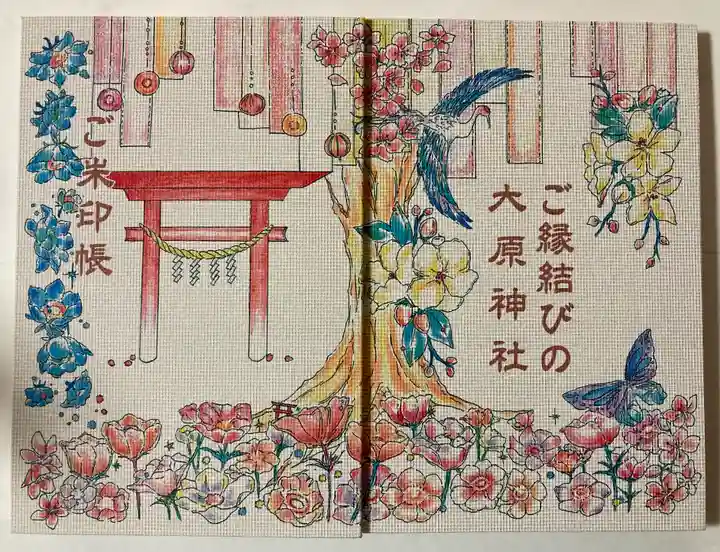 ご縁結びの
大原神社
ご米印帳